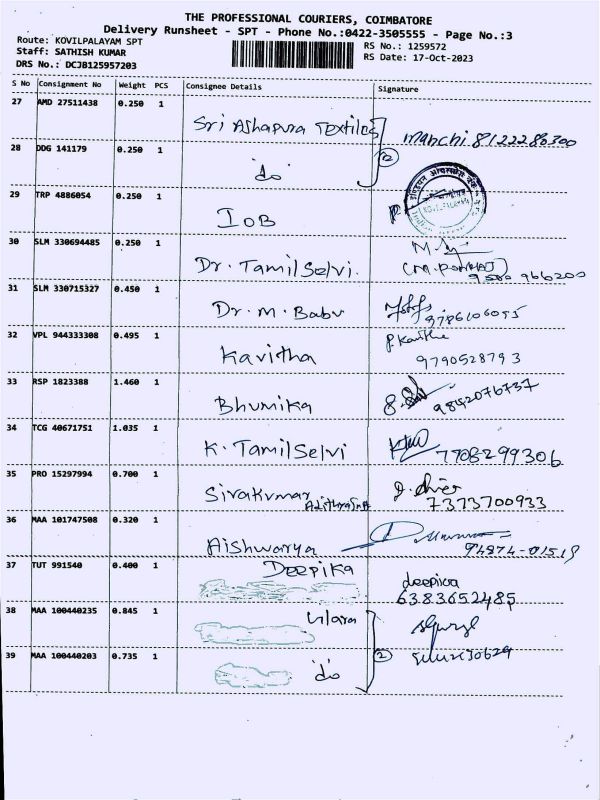 THE PROFESSIONAL COURIERS, COIMBATORE
Delivery Runsheet - SPT - Phone No.:0422-3505555 - Page No.:3
Route: KOVILPALAYAM SPT
RS No.: 1259572
Staff: SATHISH KUMAR
RS Date: 17-Oct-2023
DRS No.: DCJB125957203
S No Consignment No Weight PCS Consignee Details Signature
27 AMD 27511438 0.250 1
Sri Ashapura Textiles
28 DDG 141179 0.250 1
do
29 TRP 4886054 0.250 1
IOB
30 SLM 330694485 0.250 1
Dr. Tamil Selvi.
31 SLM 330715327 0.450 1
Dr. M. Babu 9786106055
32 VPL 944333308 0.495 1
Kavitha 9790528793
33 RSP 1823388 1.460 1
Bhumika 9842076737
34 TCG 40671751 1.035 1
K. Tamil Selvi 7708299306
35 PRO 15297994 0.700 1
Sivakumar 7373700933
36 MAA 101747508 0.320 1
Aishwarya 94874-01519
37 TUT 991540 0.400 1
Deepika deepika
6383652485
38 MAA 100440235 0.845 1
39 MAA 100440203 0.735 1
do 2